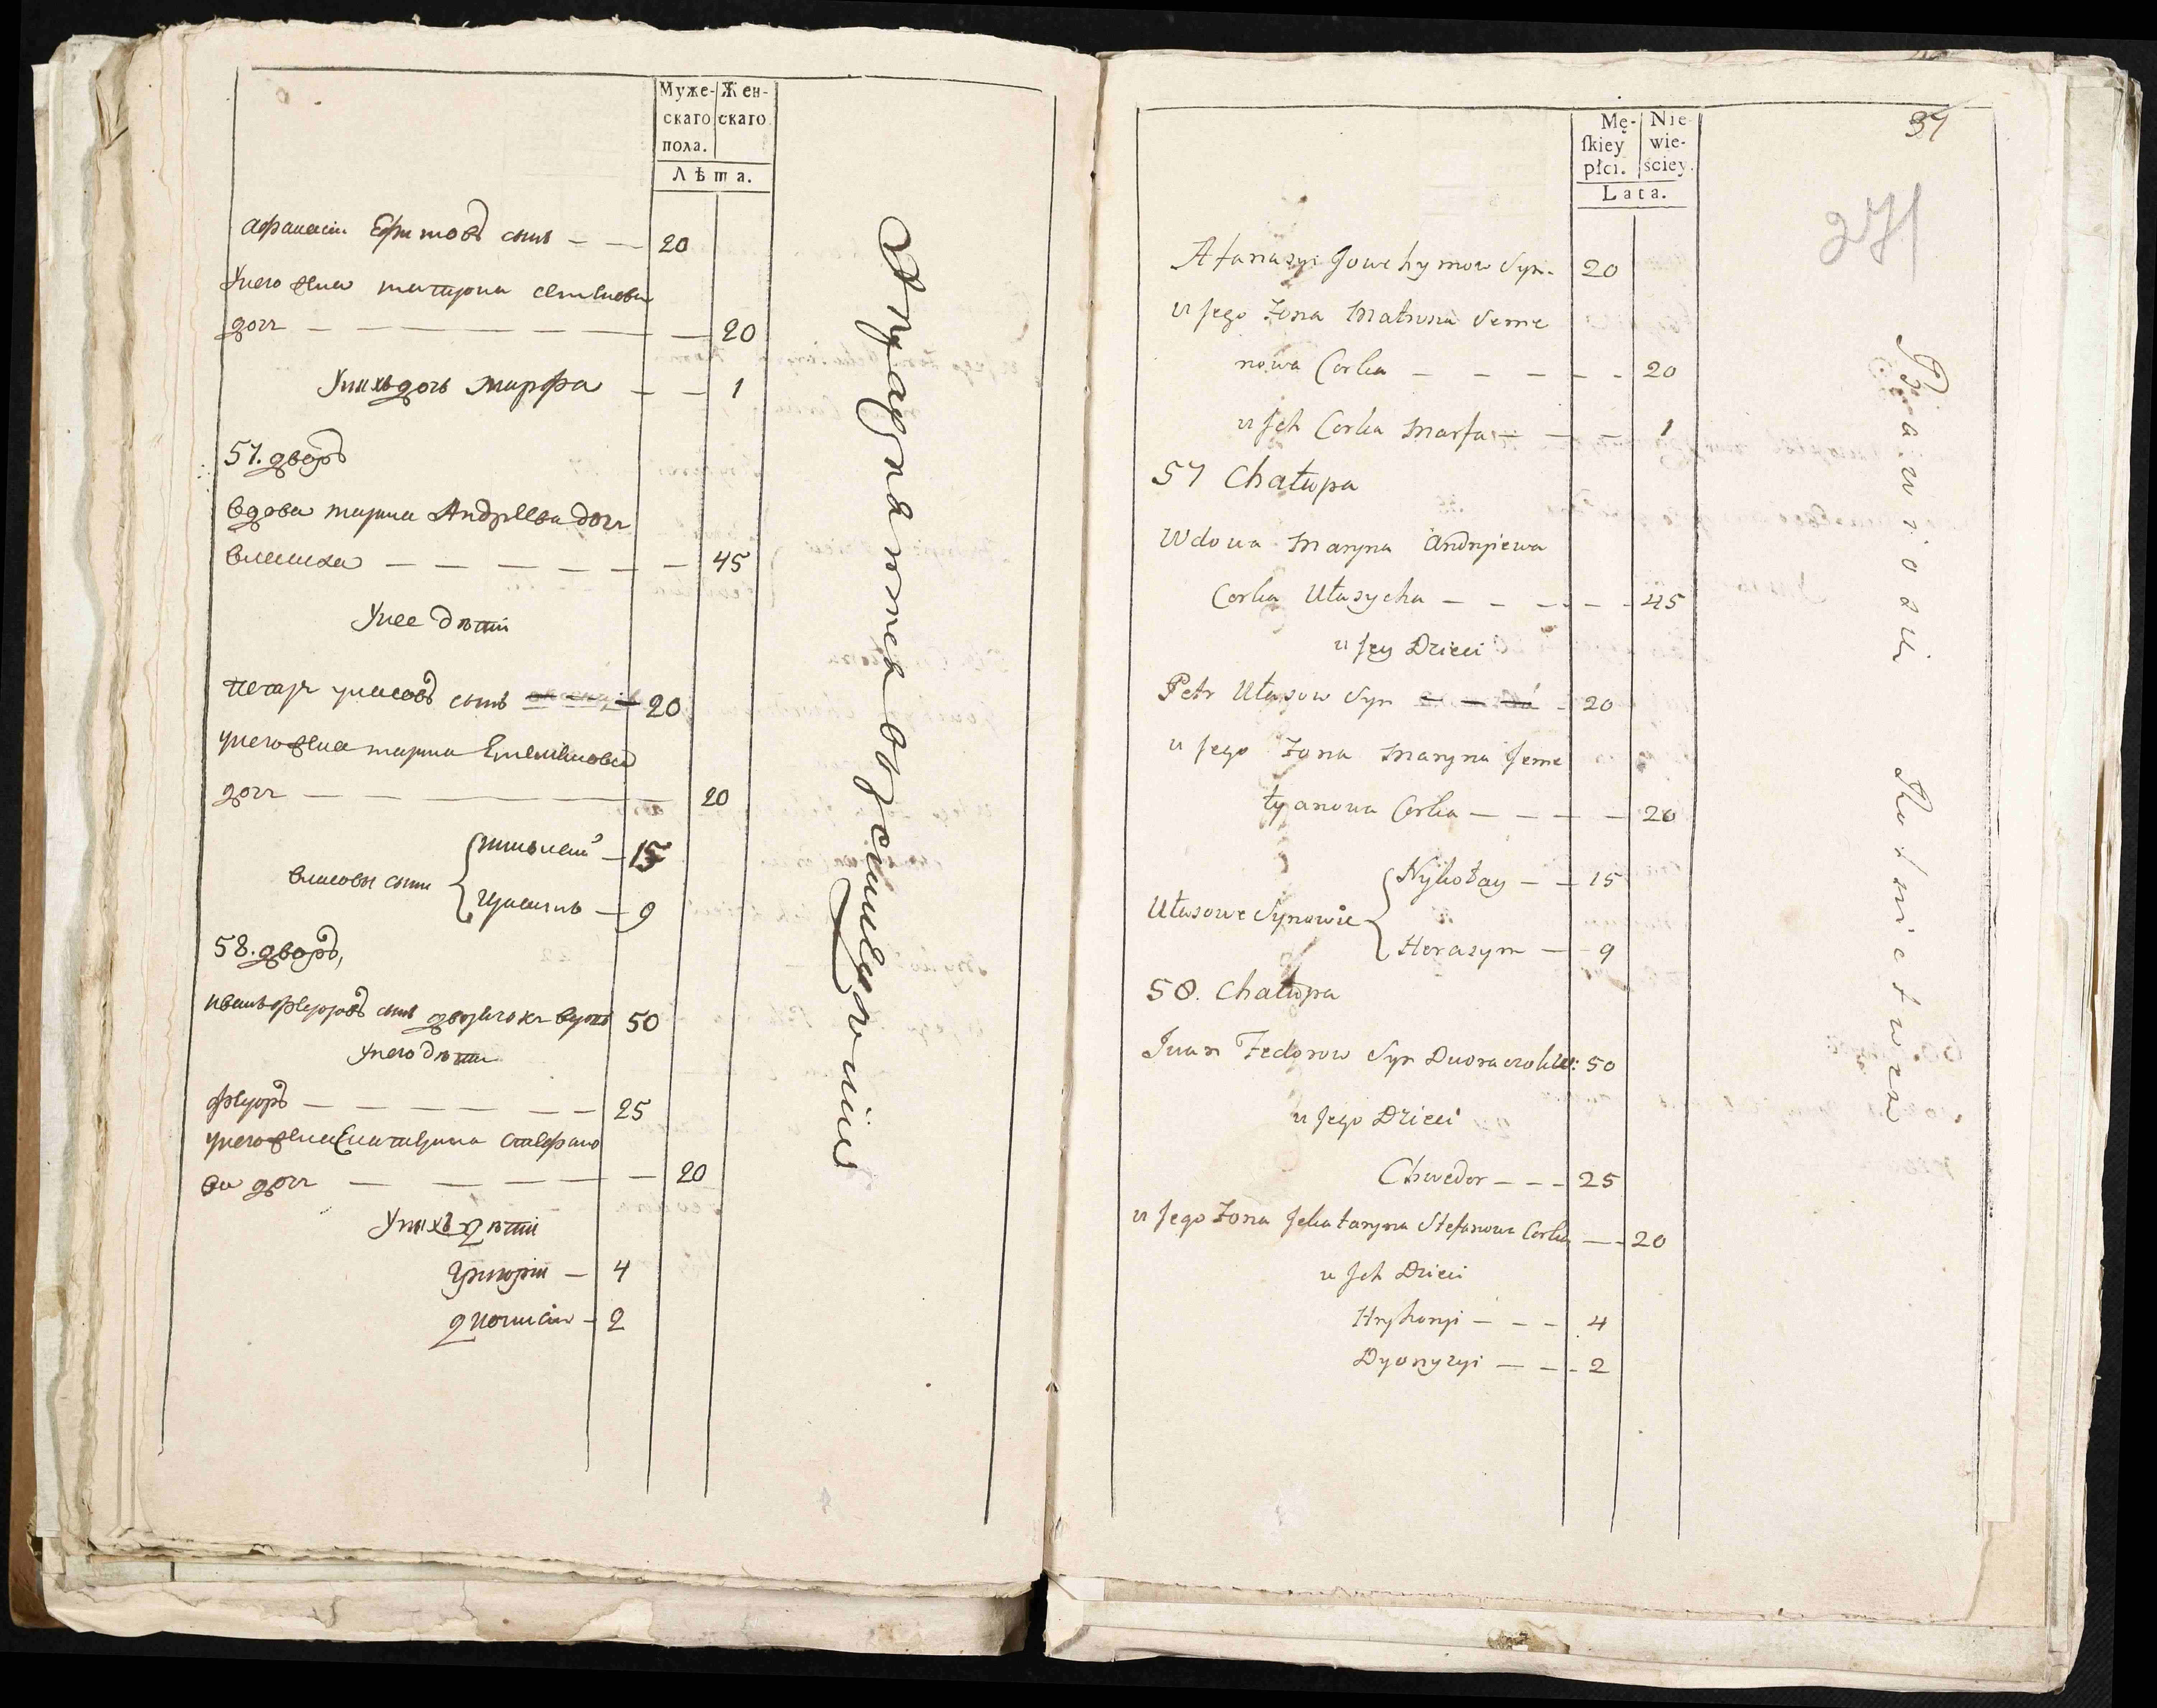 Муже-
скаго
пола.
Жен-
скаго
Лѣта.
Афанасiи Ефимовъ сынъ — — 20
Унего жена матрона семенова
дочь — — — — — — 20
Унихъ дочь Марфа — — 1
57. дворъ
вдова марина Андреева дочь
— — — — — — 45
Унее дѣти
петръ власовъ сынъ 20
унего жена марина Емелiянова
дочь — — — — — 20
власовы сыни
николай — 15
Герасимъ — 9
58. дворъ,
иванъ федоровъ сынъ 50
Унего дѣти
федоръ — — — — — — 25
унего жена Екатерина Стефано
ва дочь — — — — — 20
Унихъ дѣти
Григорiи — 4
дионисiи — 2
упражняются вхлебопашествiи
Mę-
ſkiey
płci.
Nie-
wie-
ściey.
Lata.
37
271
Afanasyi Jowchymow Syn - 20
u Jego Zona Matrona Seme
nowa Corka — — — — - 20
u Jch Corka Marfa — — — 1
57 Chałupa
Wdowa Maryna Andryiewa
Corka Ułasycha — — — — - 45
u Jey Dzieci
Petr Ułasow Syn - 20
u Jego Zona Maryna Jeme
łyanowa Corka — — — — 20
Ułasowe Synowie
Nykołay — — 15
Herasym — - 9
58. Chałupa
Iwan Fedorow Syn 50
u Jego Dzieci
Chwedor — — - 25
u Jego Zona Jekataryna Stefanowa Corka — - 20
u Jch Dzieci
Hryhoryi — — — 4
Dyonyzyi — — - 2
Bawio sie Rolnictwem